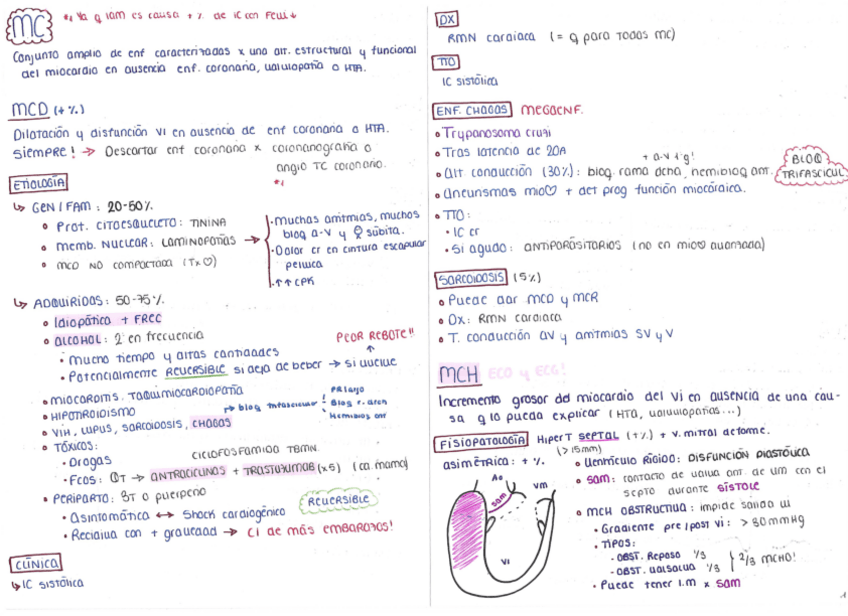 MC
*1 Ya q IAM es causa + % de IC con FEVI ↓
Conjunto amplio de enf caracterizadas x una alt. estructural y funcional
del miocardio en ausencia enf. coronaria, valvulopatía o HTA.
MCD (+ %)
Dilatación y disfunción VI en ausencia de enf coronaria o HTA.
SIEMPRE! → Descartar enf coronaria x coronariografía o
angio TC coronario.
*1
ETIOLOGÍA
↳ GEN/FAM: 20-50%.
• Prot. CITOESQUELETO: TININA
• memb. NUCLEAR: LAMINOPATÍAS →
• MCD NO compactada (Tx ♡)
• Muchas arritmias, muchos
bloq a-v y súbita.
• Dolor cr en cintura escapular
pelvica
• ↑↑ CPK
↳ ADQUIRIDAS: 50-75%.
• Idiopática + FREC
• ALCOHOL: 2ª en frecuencia
• Mucho tiempo y altas cantidades
• Potencialmente REVERSIBLE si deja de beber → si vuelve
PEOR REBOTE!!
• MIOCARDITIS. TAQUIMIOCARDIOPATÍA
• HIPOTIROIDISMO
• VIH, LUPUS, SARCOIDOSIS, CHAGAS
→ bloq trifascicular:
• PR largo
• Bloq r. drch
• Hemibloq ant
• TÓXICOS:
• Drogas
CICLOFOSFAMIDA TBMN.
• Fcos: QT → ANTRACICLINAS + TRASTUZUMAB (x5) (ca. mama)
• PERIPARTO: 3T o puerperio
• Asintomática ↔ Shock cardiogénico
REVERSIBLE
• Recidiva con + gravedad → CI de más embarazos!
CLÍNICA
↳ IC SISTÓLICA
DX
RMN cardiaca (= q para todas MC)
TTO
IC SISTÓLICA
ENF. CHAGAS MEGAENF.
• Trypanosoma cruzi
• Tras latencia de 20A
• Alt. conducción (30%): bloq. rama dcha, hemibloq ant.
+ a-v 1er g!
BLOQ
TRIFASCICUL
• Aneurismas mio♡ + det prog función miocárdica.
• TTO:
• IC cr
• Si agudo: ANTIPARASITARIOS (no en mio♡ avanzada)
SARCOIDOSIS (5%)
• Puede dar MCD y MCR
• Dx: RMN cardiaca
• T. conducción AV y arritmias SV y V
MCH ECO y ECG!
Incremento grosor del miocardio del VI en ausencia de una cau-
sa q lo pueda explicar (HTA, valvulopatías...)
FISIOPATOLOGÍA HIPERT SEPTAL (+%) + v. mitral deforme.
(>15mm)
asimétrica: + %.
• Ventrículo RÍGIDO: DISFUNCIÓN DIASTÓLICA
• SAM: contacto de valva ant. de VM con el
septo durante SÍSTOLE
• MCH OBSTRUCTIVA: impide salida VI
• Gradiente pre/post VI: > 30mmHg
• TIPOS:
- OBST. Reposo 1/3
- OBST. valsalva 1/3
2/3 MCHO!
• Puede tener I.M x SAM
Ao
SAM
VM
VI
1